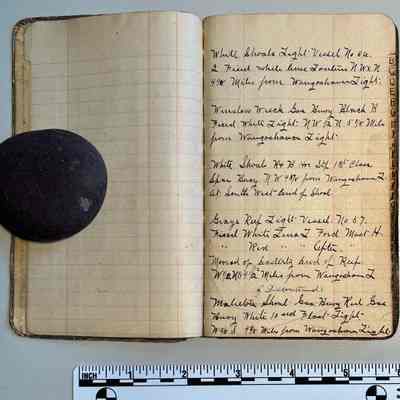 White Shoals Light Vessel No
2 Fixed white Lens Lantern N W x N
Miles from Waugoshance Light.
Winslow Wreck Gas Buoy Black
Fixed White Light. N W N Miles
from Waugoshance Light
White Shoals 1st Class
Spar Buoy N W from Waugoshance L
at South West end of Shoal
Grays Reef Light Vessel No 57.
Fixed White Ford Mast H.
" Red " " After "
Moored of end of Reef.
Miles from Waugoshance L
Discontinued
Shoal Gas Buoy Red Gas
Buoy White 10 sed Float Light
Miles from Waugoshance Light
INCH 1 2 3 4 5 6